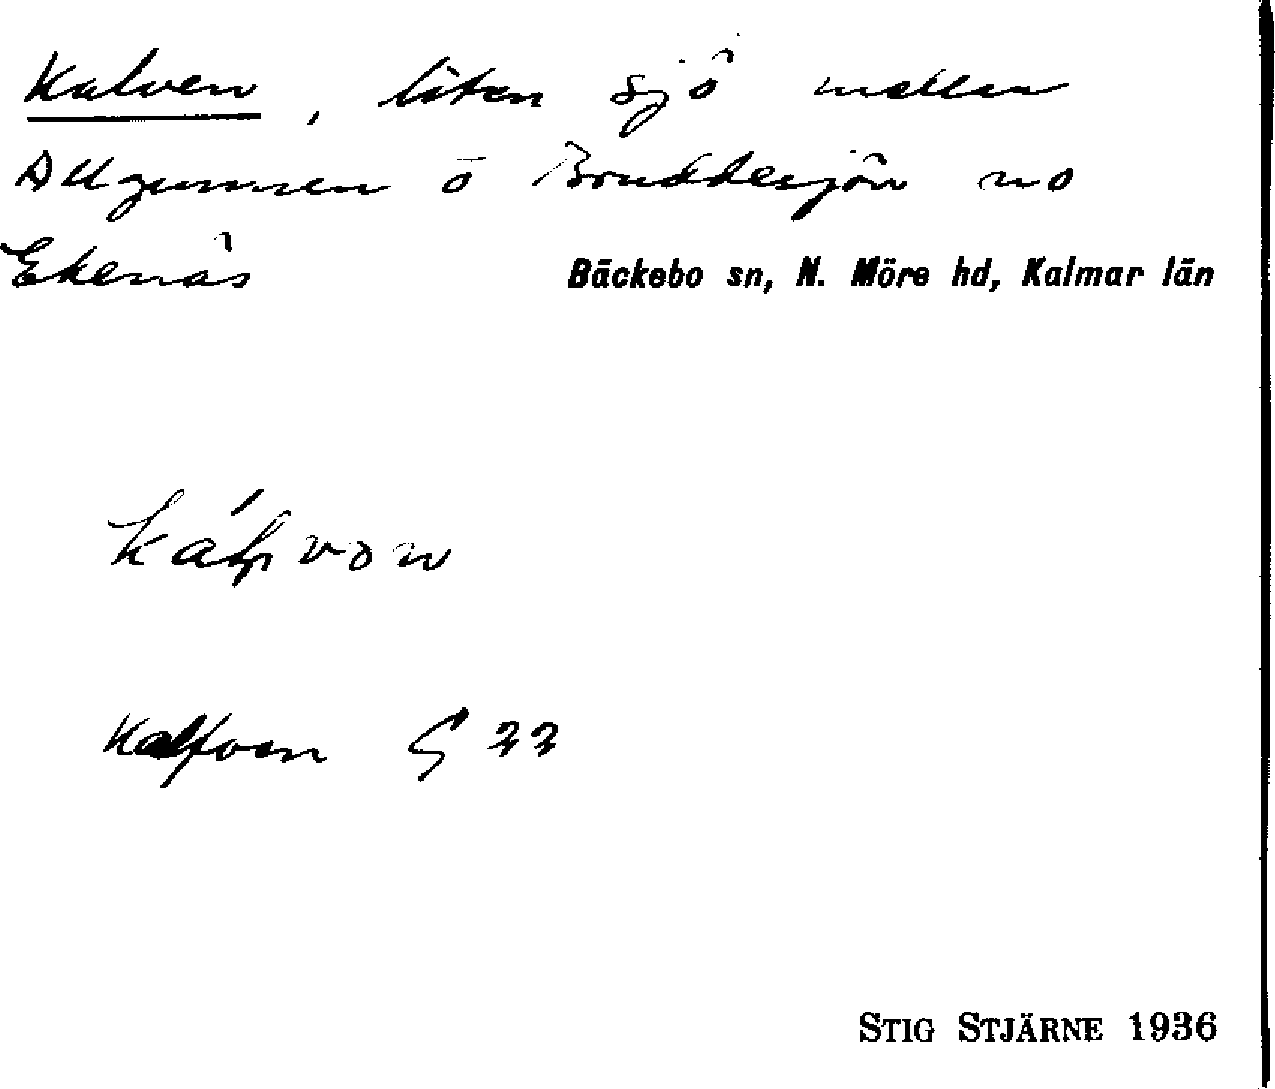 Kalven, liten sjö mellan
Allgunnen o Bruddesjön no
Ekenäs
Bäckebo sn, N. Möre hd, Kalmar län
kálvon
Kalfven G 22
STIG STJÄRNE 1936